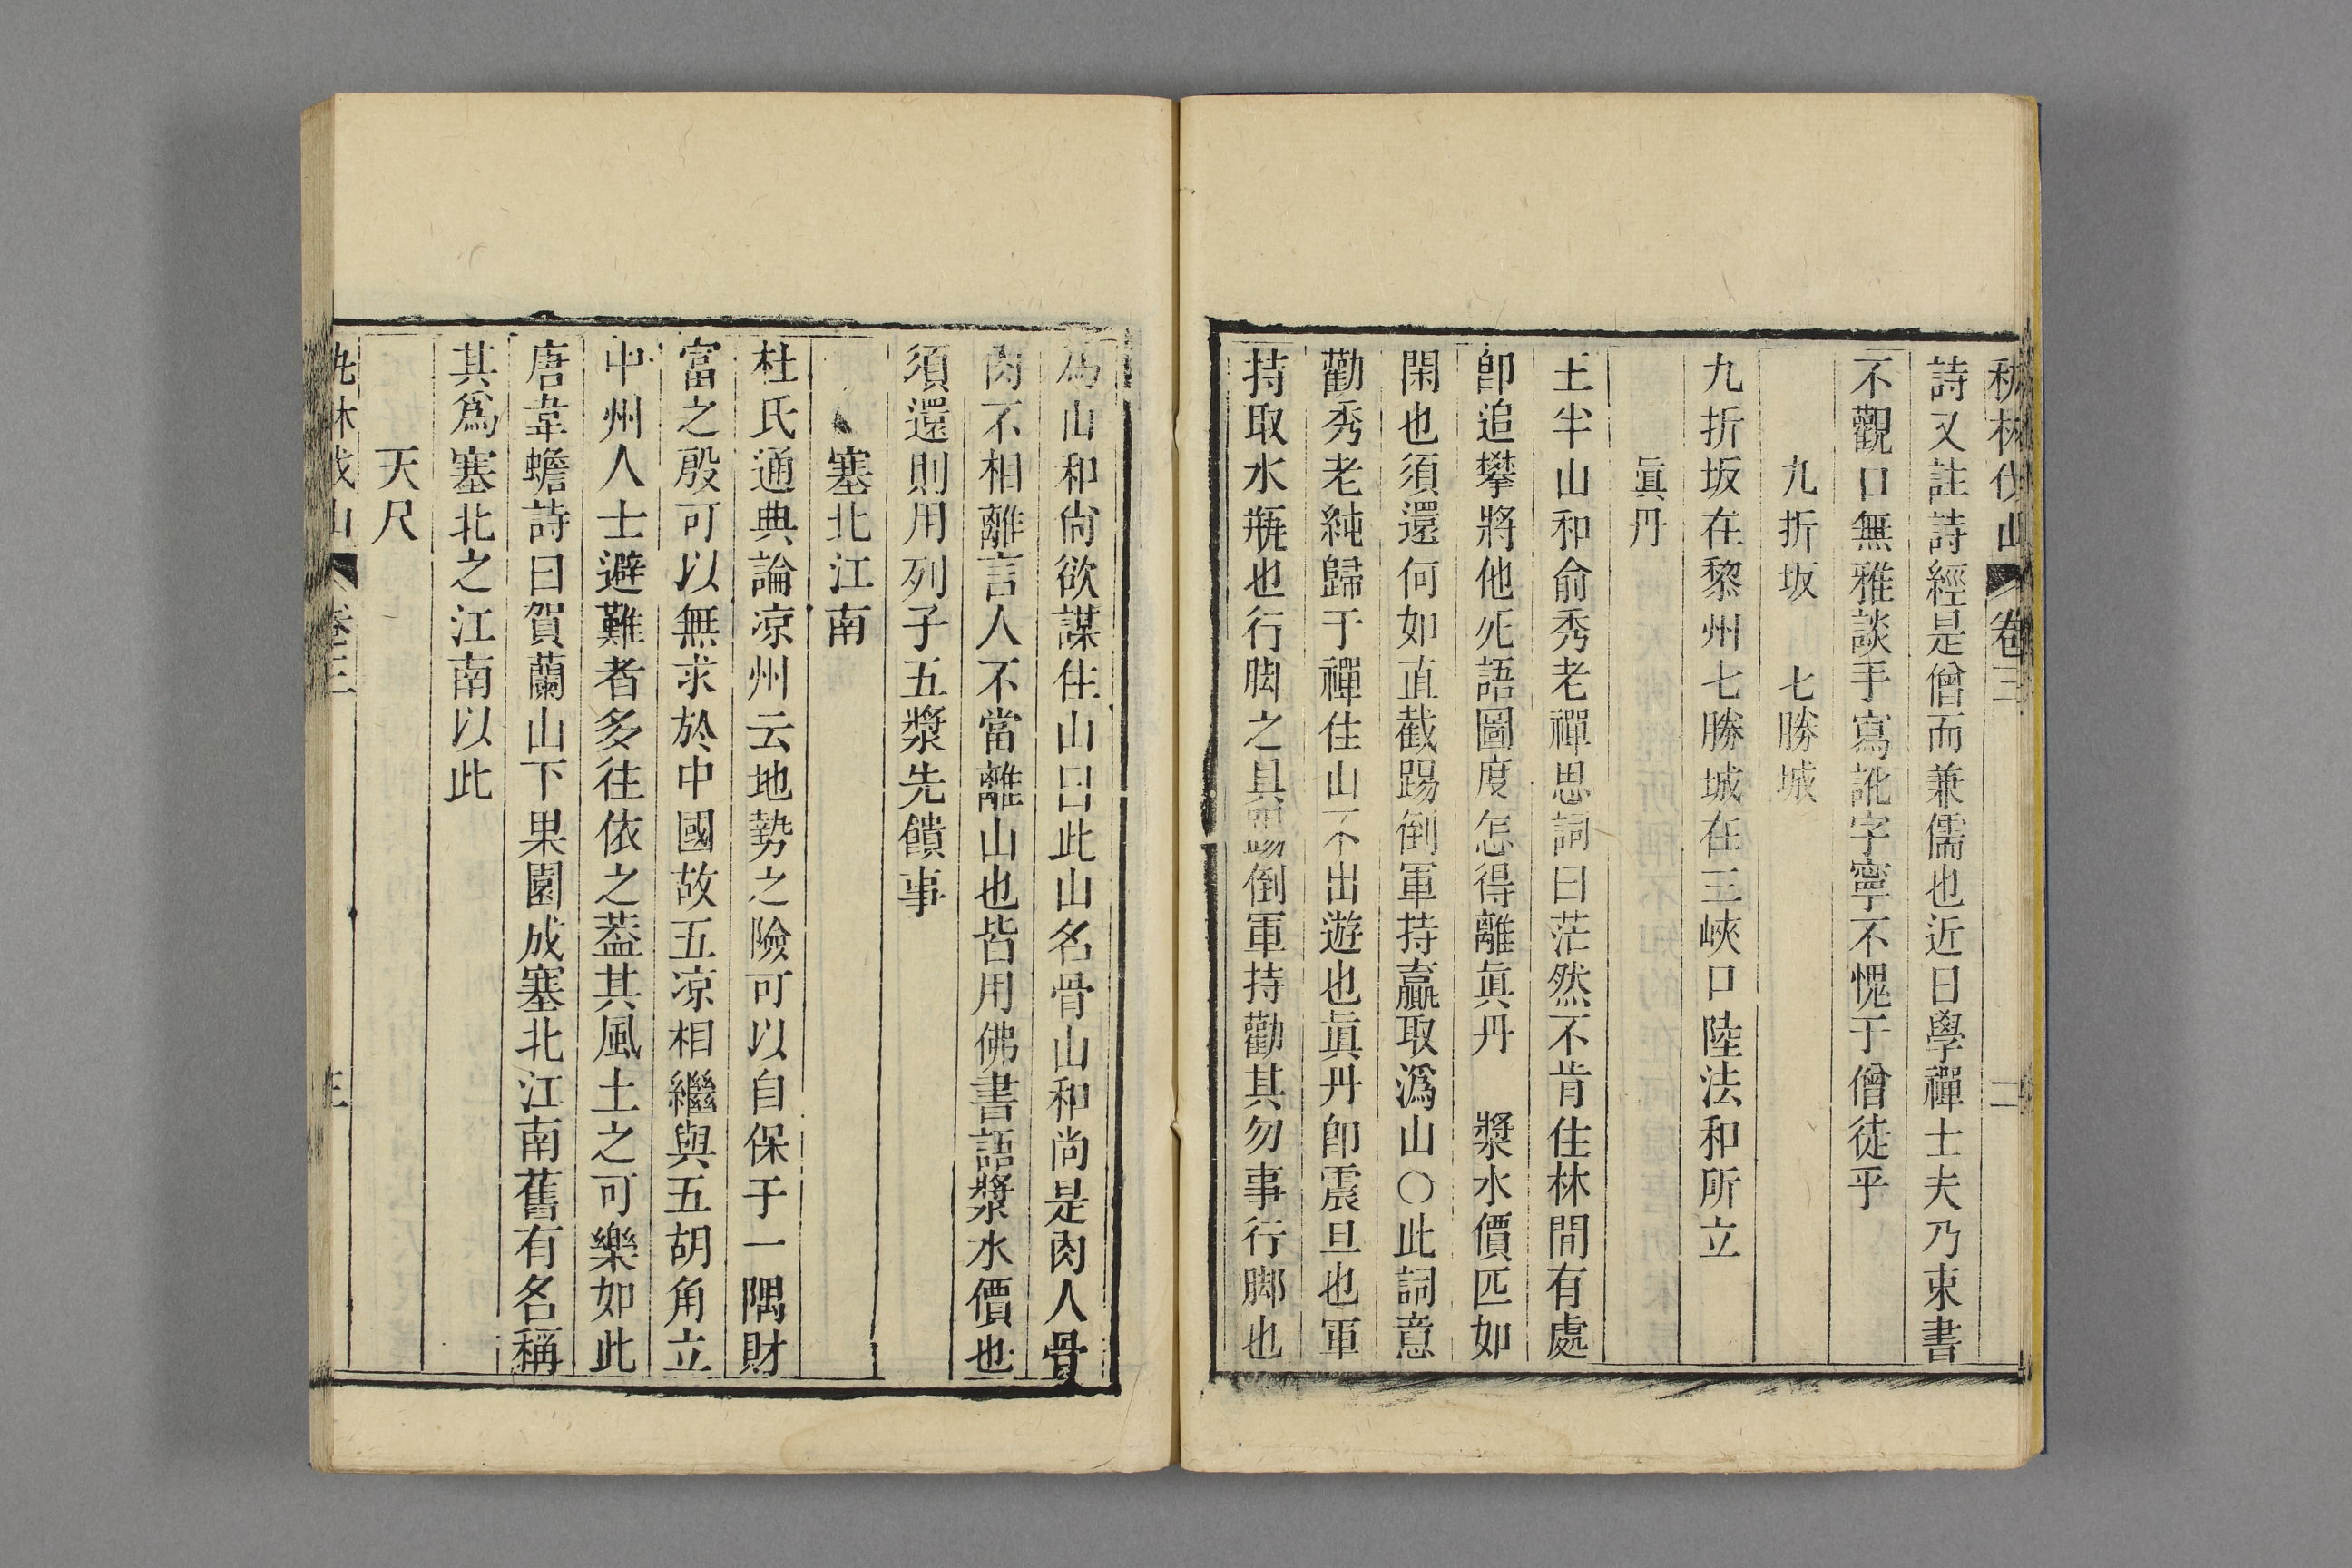 秇林伐山 卷三 二
詩又註詩經是僧而兼儒也近日學禪士夫乃束書
不觀口無雅談手寫訛字寧不愧于僧徒乎
九折坂 七勝城
九折坂在黎州七勝城在三峽口陸法和所立
眞丹
王半山和俞秀老禪思詞曰茫然不肯住林間有處
卽追攀將他死語圖度怎得離眞丹 漿水價匹如
閑也須還何如直截踢倒軍持贏取潙山○此詞意
勸秀老純歸于禪住山不出遊也眞丹卽震旦也軍
持取水甁也行脚之具踢倒軍持勸其勿事行脚也
潙山和尙欲謀住山曰此山名骨山和尚是肉人骨
肉不相離言人不當離山也皆用佛書語漿水價也
須還則用列子五漿先饋事
塞北江南
杜氏通典論涼州云地勢之險可以自保于一隅財
富之殷可以無求於中國故五涼相繼與五胡角立
中州人士避難者多往依之葢其風土之可樂如此
唐韋蟾詩曰賀蘭山下果園成塞北江南舊有名稱
其爲塞北之江南以此
天尺
秇林伐山 卷三 三